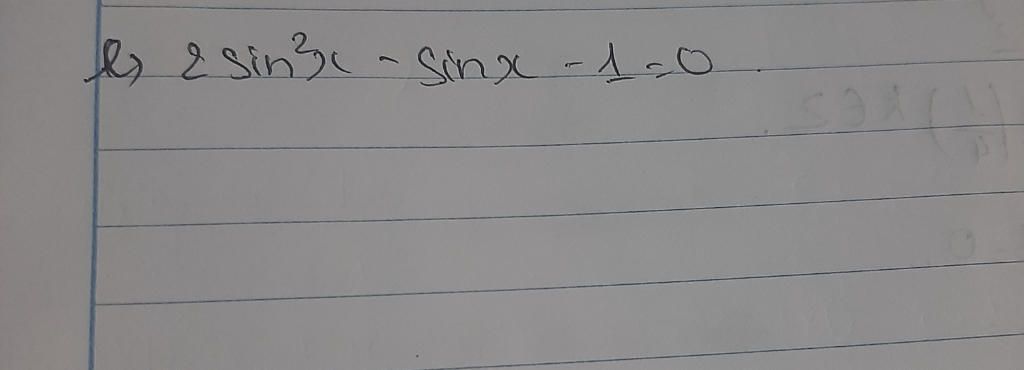 b) 2 sin²x - sinx - 1 = 0.